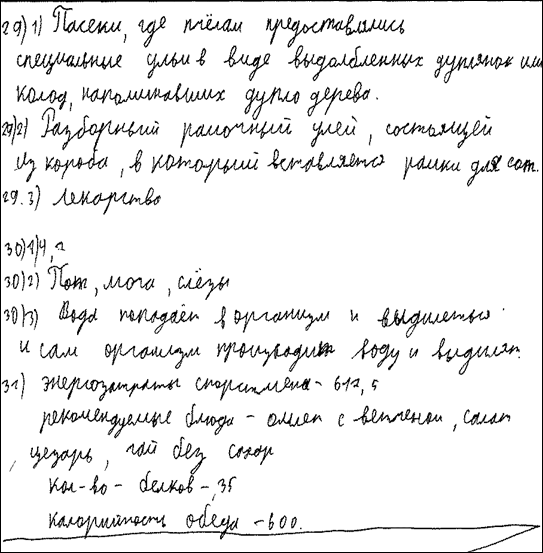 29) 1) Пасеки, где пчёлам предоставлялись
специальные ульи в виде выдолбленных дуплянок или
колод, напоминавших дупло дерева.
29) 2) Разборный рамочный улей, состоящей
из короба, в который вставляется рамки для сот.
29. 3) Лекарство
30) 1) 4,2
30) 2) Пот, моча, слёзы
30) 3) Вода попадает в организм и выдилеться
и сам организм производит воду и выдилят.
31) Энергозатраты спортсмена - 617,5
рекомендуемые блюда - омлет с ветченой, салат
, цезарь, чай без сахар
Кол-во - белков -, 35
Калорийность обеда - 600.